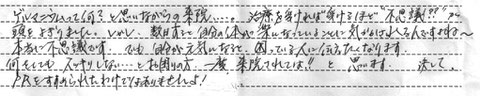 ゲルマニウムって何？と思いながらの来院……。治療を受ければ受けるほど“不思議!??”が
頭をよぎりました。しかし、数日すると自分の体が変わっていることに気がはれるんですよね～
本当に不思議です。でも自分が元気になると、困っている人に伝えたくなります。
何をしてもスッキリしない…とお困りの方、一度来院されては!!と思います。決して、
PRをすすめられたわけではありませんよ!